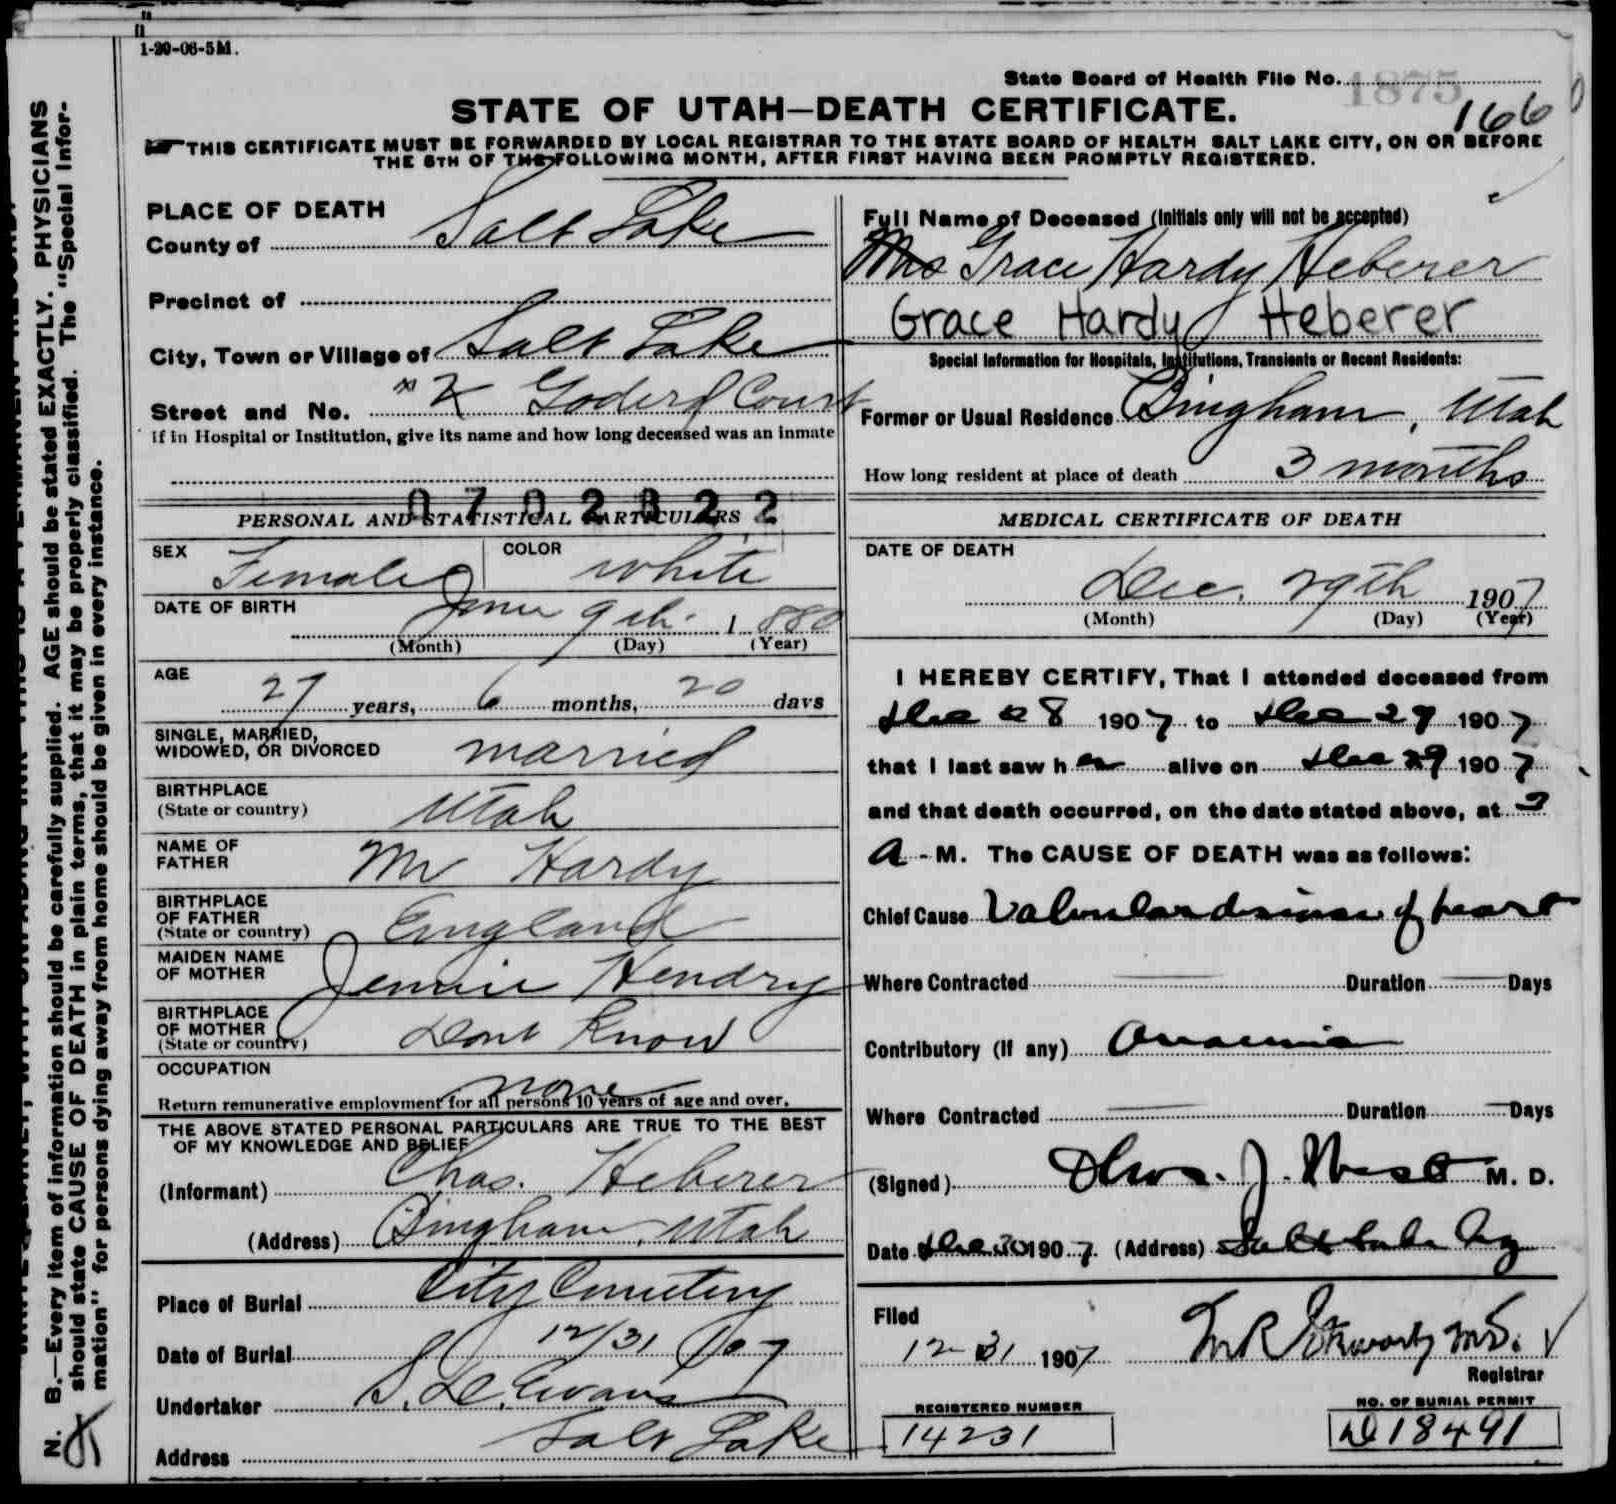 1-20-06-5M.
State Board of Health File No. 1875
166
STATE OF UTAH—DEATH CERTIFICATE.
THIS CERTIFICATE MUST BE FORWARDED BY LOCAL REGISTRAR TO THE STATE BOARD OF HEALTH SALT LAKE CITY, ON OR BEFORE
THE 5TH OF THE FOLLOWING MONTH, AFTER FIRST HAVING BEEN PROMPTLY REGISTERED.
PLACE OF DEATH
County of Salt Lake
Precinct of
City, Town or Village of Salt Lake
Street and No. Court
If in Hospital or Institution, give its name and how long deceased was an inmate
0702822
PERSONAL AND STATISTICAL PARTICULARS
SEX Female COLOR white
DATE OF BIRTH June 9th 1880
(Month) (Day) (Year)
AGE
27 years, 6 months, 20 days
SINGLE, MARRIED,
WIDOWED, OR DIVORCED married
BIRTHPLACE
(State or country) Utah
NAME OF
FATHER Mr Hardy
BIRTHPLACE
OF FATHER
(State or country) England
MAIDEN NAME
OF MOTHER Jennie Hendry
BIRTHPLACE
OF MOTHER
(State or country) Dont Know
OCCUPATION
none
Return remunerative employment for all persons 10 years of age and over.
THE ABOVE STATED PERSONAL PARTICULARS ARE TRUE TO THE BEST
OF MY KNOWLEDGE AND BELIEF
(Informant) Chas. Heberer
(Address) Bingham, Utah
Place of Burial City Cemetery
Date of Burial 12/31 07
Undertaker S. D. Evans
Address Salt Lake
Full Name of Deceased (Initials only will not be accepted)
Mrs Grace Hardy Heberer
Grace Hardy Heberer
Special Information for Hospitals, Institutions, Transients or Recent Residents:
Former or Usual Residence Bingham, Utah
How long resident at place of death 3 months
MEDICAL CERTIFICATE OF DEATH
DATE OF DEATH
Dec. 29th 1907
(Month) (Day) (Year)
I HEREBY CERTIFY, That I attended deceased from
Dec 8 1907 to Dec 29 1907
that I last saw her alive on Dec 29 1907
and that death occurred, on the date stated above, at 3
A-M. The CAUSE OF DEATH was as follows:
Chief Cause Valvular disease of heart
Where Contracted — Duration — Days
Contributory (If any) Anaemia
Where Contracted — Duration — Days
(Signed) M. D.
Date Dec 30 1907 (Address) Salt Lake City
Filed
12-31 1907
Registrar
REGISTERED NUMBER
14231
NO. OF BURIAL PERMIT
D18491
N. B.—Every item of information should be carefully supplied. AGE should be stated EXACTLY. PHYSICIANS
should state CAUSE OF DEATH in plain terms, that it may be properly classified. The "Special Infor-
mation" for persons dying away from home should be given in every instance.